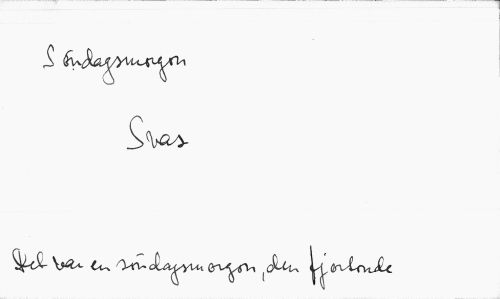 Söndagsmorgon
Svar
Det var en söndagsmorgon, den fjortonde